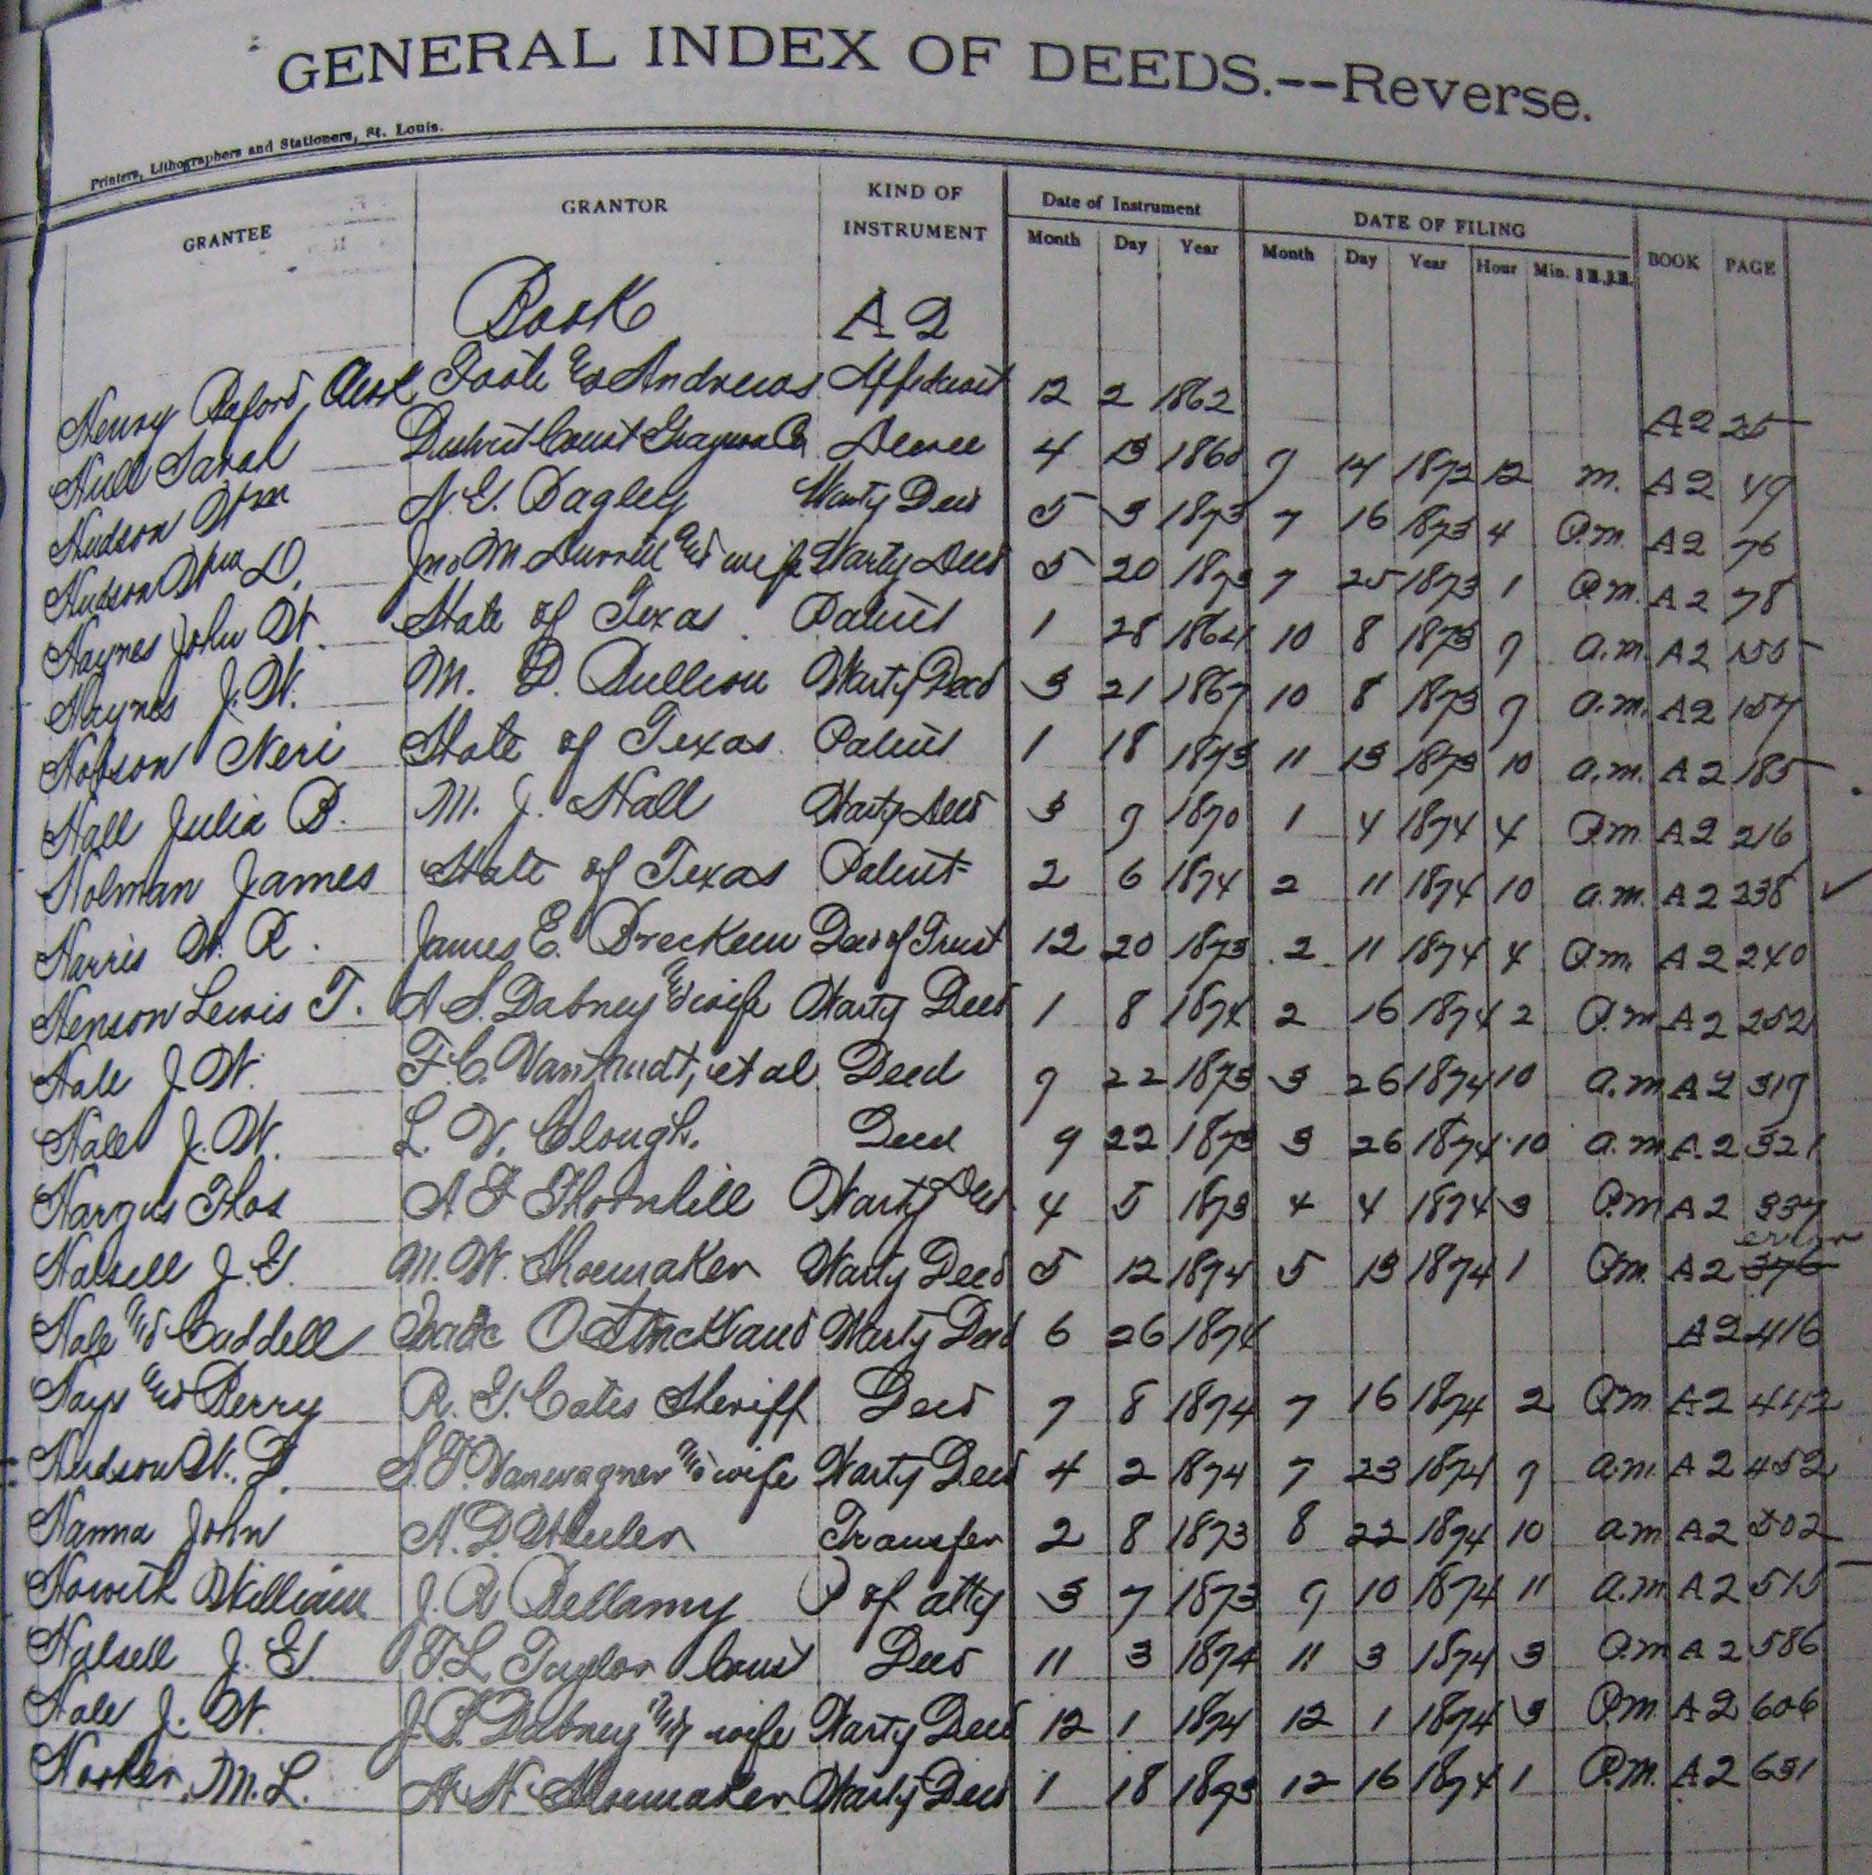 GENERAL INDEX OF DEEDS.--Reverse.
Printers, Lithographers and Stationers, St. Louis.
GRANTEE GRANTOR KIND OF INSTRUMENT Date of Instrument DATE OF FILING BOOK PAGE
Month Day Year Month Day Year Hour Min.
Book A 2
Henry Buford, Clerk Foote & Andrews Affidavit 12 2 1862 A2 25
Hull Sarah District Court Grayson Co Decree 4 13 1860 9 14 1872 12 m. A2 49
Hudson Wm N. G. Bagley Warty Deed 5 3 1873 7 16 1873 4 P.m. A2 76
Hudson Wm D. Jno M. and wife Warty Deed 5 20 1873 7 25 1873 1 P.m. A2 78
Haynes John W. State of Texas Patent 1 28 1864 10 8 1873 9 a.m. A2 155
Haynes J. W. M. D. Bullion Warty Deed 3 21 1867 10 8 1873 9 a.m. A2 157
Hobson Neri State of Texas Patent 1 18 1873 11 13 1873 10 a.m. A2 185
Hall Julia B. M. J. Hall Warty Deed 3 9 1870 1 4 1874 4 P.m. A2 216
Holman James State of Texas Patent 2 6 1874 2 11 1874 10 a.m. A2 238 ✓
Harris W. R. James E. Breckeen Deed of Trust 12 20 1873 2 11 1874 4 P.m. A2 240
Henson Lewis T. A S. Dabney and wife Warty Deed 1 8 1874 2 16 1874 2 P.m. A2 252
Hale J. W. F. C. et al Deed 9 22 1873 3 26 1874 10 a.m. A2 319
Hale J. W. L. V. Clough. Deed 9 22 1873 3 26 1874 10 a.m. A.2 321
Hargus Thos A F Thornhill Warty Deed 4 5 1873 4 4 1874 3 P.m. A2 337
error
Halsell J. G. M. W. Shoemaker Warty Deed 5 12 1874 5 13 1874 1 P.m. A2 376
Hale and Caddell Isaac O Strickland Warty Deed 6 26 1874 A2 416
Hays and Berry R. G. Cates Sheriff Deed 7 8 1874 7 16 1874 2 P.m. A2 442
Hudson W. D. S. F. Vanwagner and wife Warty Deed 4 2 1874 7 23 1874 9 a.m. A2 452
Hanna John A. D. Wheeler Transfer 2 8 1873 8 22 1874 10 a.m A2 502
Howeth William J. R. Bellamy P of atty 3 7 1873 9 10 1874 11 a.m A2 515
Halsell J. G. T. L Taylor Const Deed 11 3 1874 11 3 1874 3 P.m A2 586
Hale J. W. J. P. Dabney and wife Warty Deed 12 1 1874 12 1 1874 3 P.m. A2 606
Hooker, M. L. H. Shoemaker Warty Deed 1 18 1873 12 16 1874 1 P.m. A2 631